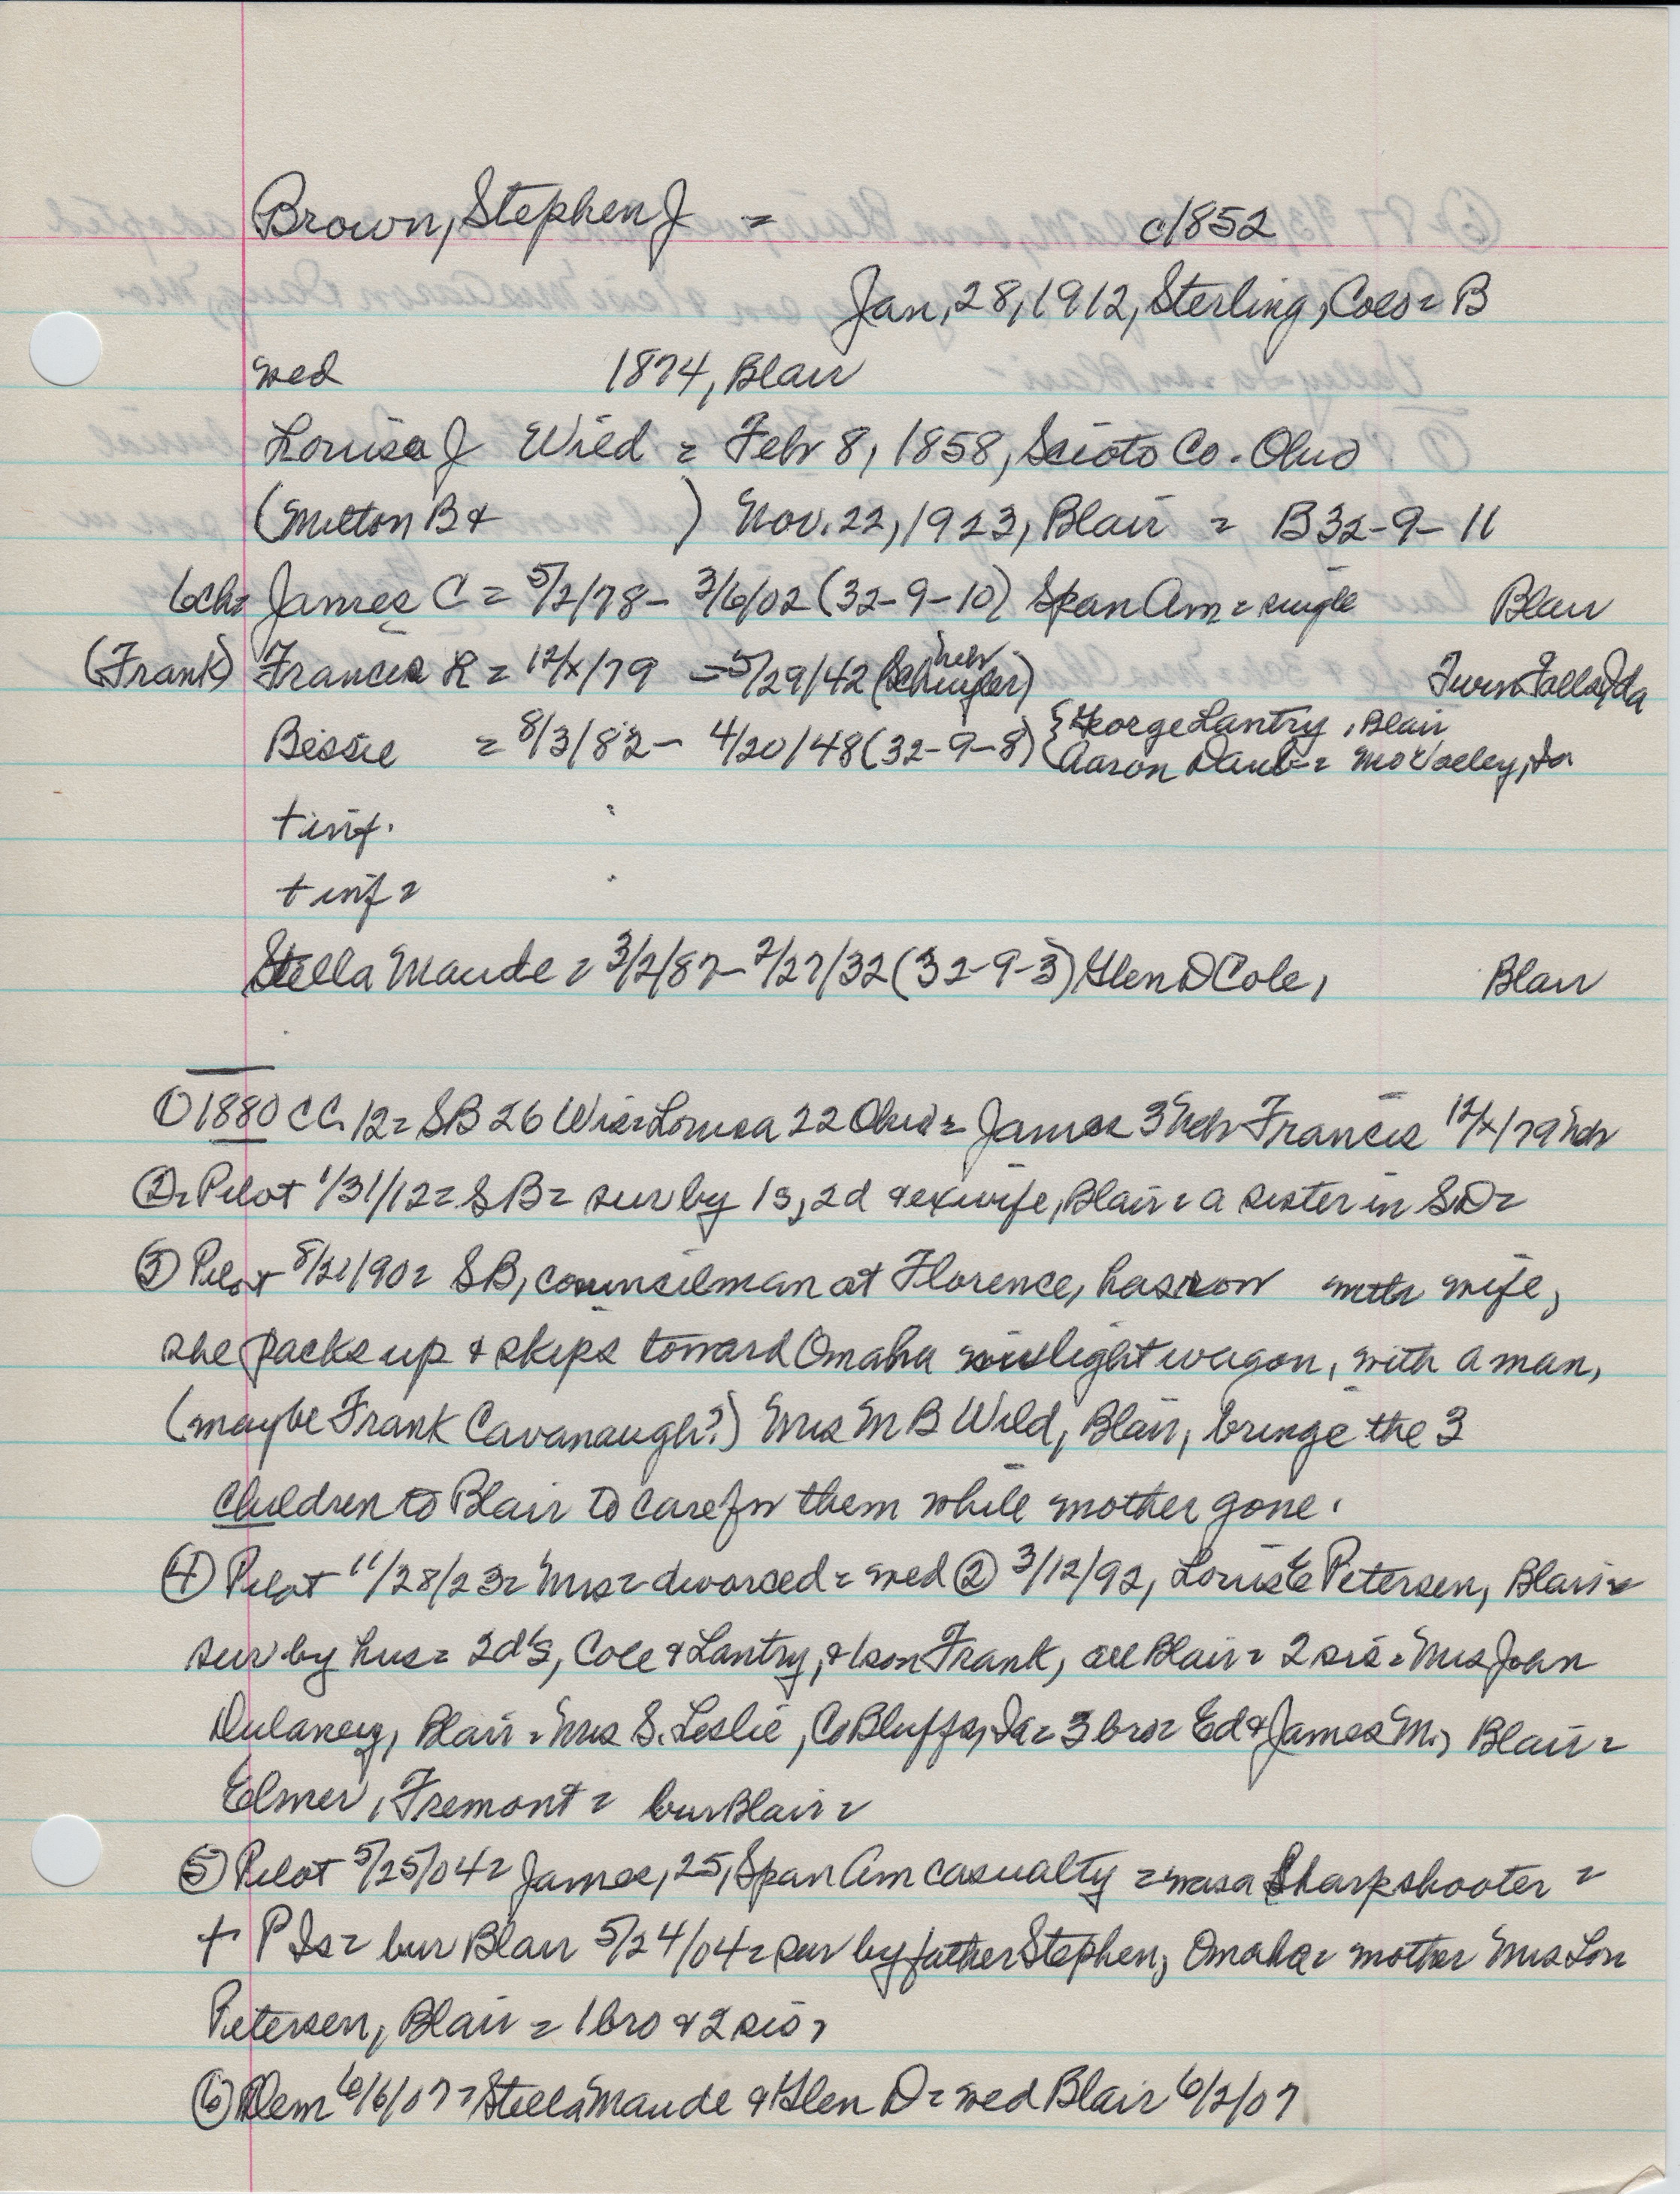 Brown, Stephen J = c1852
Jan, 28, 1912, Sterling, Colo = B
wed 1874, Blair
Louisa J Wild = Feb 8, 1858, Scioto Co. Ohio
(Milton B & ) Nov. 22, 1923, Blair = B32-9-11
6ch= James C = 5/2/78 - 3/6/02 (32-9-10) Span Am = single Blair
(Frank) Francis R = 12/x/79 - 5/29/42 (Schuyler) Nebr Twin Falls, Ida
Bessie = 8/3/82 - 4/20/48 (32-9-8) { George Lantry, Blair
Aaron Daub = Mo Valley, Ia
+ inf.
+ inf =
Stella Maude = 3/2/87 - 2/27/32 (32-9-3) Glen D Cole, Blair
① 1880 CC. 12 = SB 26 Wis = Louisa 22 Ohio = James 3 Neb Francis 12/x/79 Neb
② = Pilot 1/31/12 = SB = sur by 1s, 2d & exwife, Blair = a sister in SD =
③ Pilot 8/21/90 = SB, councilman at Florence, has row with wife,
she packs up & skips toward Omaha light wagon, with a man,
(maybe Frank Cavanaugh?) Mrs M B Wild, Blair, brings the 3
children to Blair to care for them while mother gone.
④ Pilot 11/28/23 = Mrs = divorced = wed ② 3/12/92, Louis E Petersen, Blair =
sur by hus = 2d's, Cole & Lantry, & 1 son Frank, all Blair = 2 sis = Mrs John
Dulaney, Blair = Mrs S. Leslie, Co Bluffs, Ia = 3 bro = Ed & James M., Blair =
Elmer, Fremont = bur Blair =
⑤ Pilot 5/25/04 = James, 25, Span Am casualty = was a Sharpshooter =
+ P Is = bur Blair 5/24/04 = sur by father Stephen, Omaha = mother Mrs Lou
Petersen, Blair = 1 bro & 2 sis,
⑥ Dem 6/6/07 = Stella Maude & Glen D = wed Blair 6/2/07